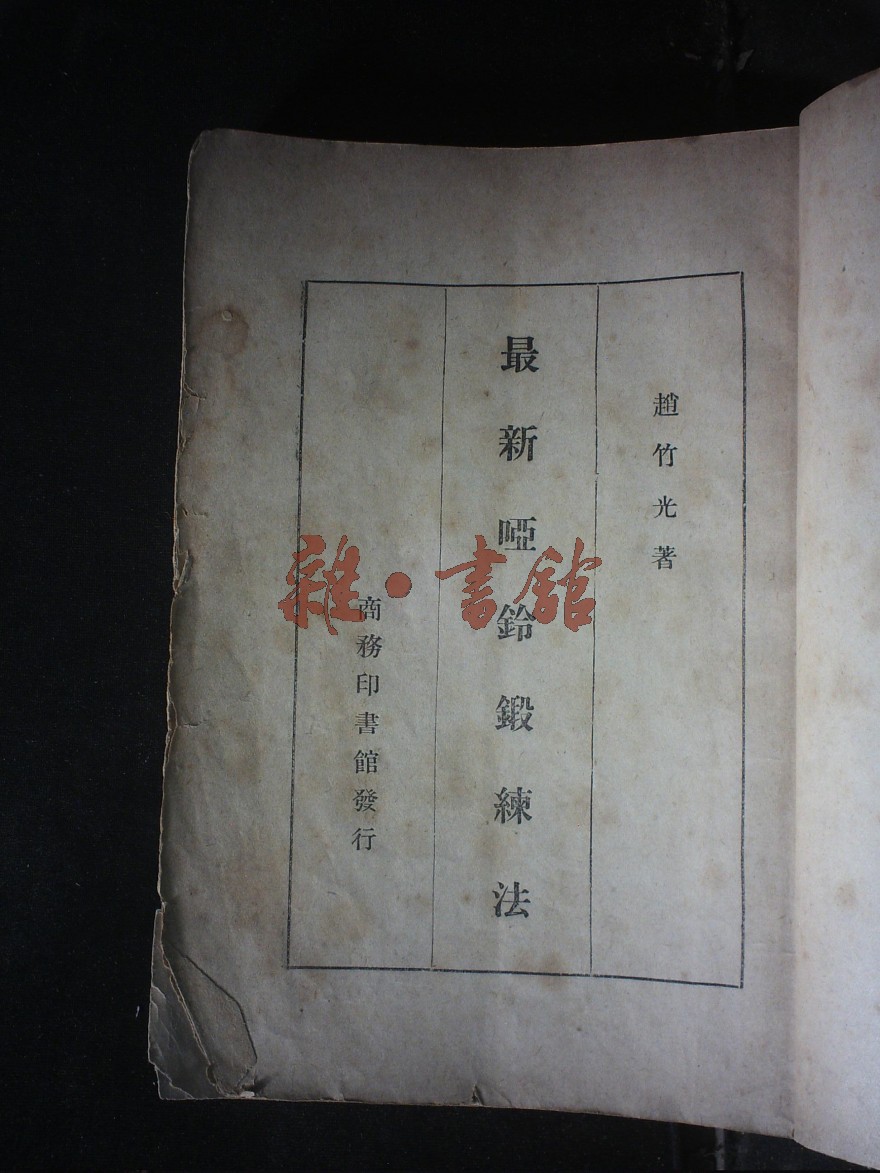 趙竹光著
最新啞鈴鍛練法
商務印書館發行
雜·書館